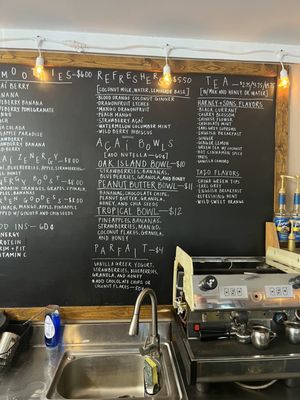 OOTHIES - $6.00
AÇAÍ BERRY
BANANA
BANANA
BERRY POMEGRANATE
NGO
COLADA
APPLE PARADISE
BERRY
BERRY BANANA
BERRY
AÇAÍ ENERGY - $8.00
ENERGY BOOST - $8.00
GREEN GODDESS - $8.00
SPINACH, MANGO, APPLE, PINEAPPLE
TOPPED W/ GINGER AND CHIA SEEDS
ADD INS - 60¢
ENERGY
PROTEIN
RIM + FIT
VITAMIN C
REFRESHER $5.50
[COCONUT MILK, WATER, LEMONADE BASE]
•BLOOD ORANGE COCONUT GINGER
•DRAGONFRUIT LYCHEE
•MANGO DRAGONFRUIT
•PEACH MANGO
•STRAWBERRY AÇAÍ
•WATERMELON CUCUMBER MINT
•WILD BERRY HIBISCUS
AÇAÍ BOWLS
[ADD NUTELLA - 60¢]
OAK ISLAND BOWL - $10
STRAWBERRIES, BANANAS,
BLUEBERRIES, GRANOLA, AND HONEY
PEANUT BUTTER BOWL - $11
BANANAS, CHOCOLATE CHIPS,
PEANUT BUTTER, GRANOLA,
HONEY, AND CHIA SEEDS
TROPICAL BOWL - $12
PINEAPPLES, BANANAS,
STRAWBERRIES, MANGO,
COCONUT FLAKES, GRANOLA,
AND HONEY
PARFAIT - $4
VANILLA GREEK YOGURT,
STRAWBERRIES, BLUEBERRIES,
GRANOLA, AND HONEY
•ADD CHOCOLATE CHIPS OR
COCONUT FLAKES - 60¢
TEA
[W/ MILK AND HONEY OR WATER]
HARNEY & SONS FLAVORS
•BLACK CURRANT
•CHERRY BLOSSOM
•CHOCOLATE MINT
•EARL GREY SUPREME
•ENGLISH BREAKFAST
•GINGER
•GINGER LEMON
•GREEN TEA W/ COCONUT
•HOT CINNAMON SPICE
•PARIS
•VANILLA COMORO
TAZO FLAVORS
•CHINA GREEN TIPS
•EARL GREY
•ENGLISH BREAKFAST
•REFRESHING MINT
•WILD SWEET ORANGE